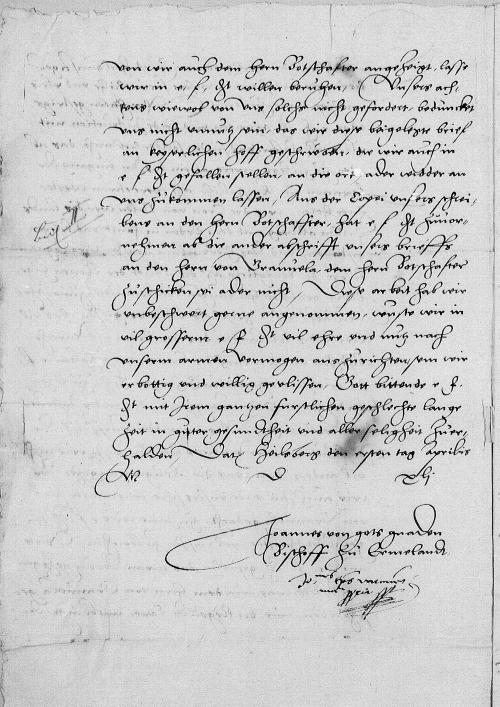 von wir auch dem hern Botschaffter angezeigt, lasse
wir in e f Dt willen beruhen. Unsers ach,
tens wiewol von uns solchs nicht gefordert, beduncket
uns nicht unnutz sein, das wir diese beigelegte brief
an keyserlichen hoff geschrieben, die wir auch in
e f Dt gefallen stellen, an die ort, ader widder an
uns zukommen lassen, Aus der Copei unsers schrei,
bens an den hern Botschaffter, hat e f Dt zuvor,
nehmen ab die ander abschrifft unsers brieffs
an den hern von Granvela, dem hern Botschaffter
zuschicken sei ader nicht, Diese arbeit hab wir
unbeschwert gerne angenommen, wuste wir in
vil grosserm e f Dt vil ehre und nutz nach
unserm armen vermogen aus zurichten, sein wir
erbottig und willig geflissen, Gott bittende e f
Dt mit Irem gantzen furstlichen geschlechte lange
zeit in guter gesundtheit und aller seligheit zu er,
halden Dat Heilsberg den ersten tag Aprilis
M D xlj
Joannes von gots gnaden
Bischoff zu Ermelandt